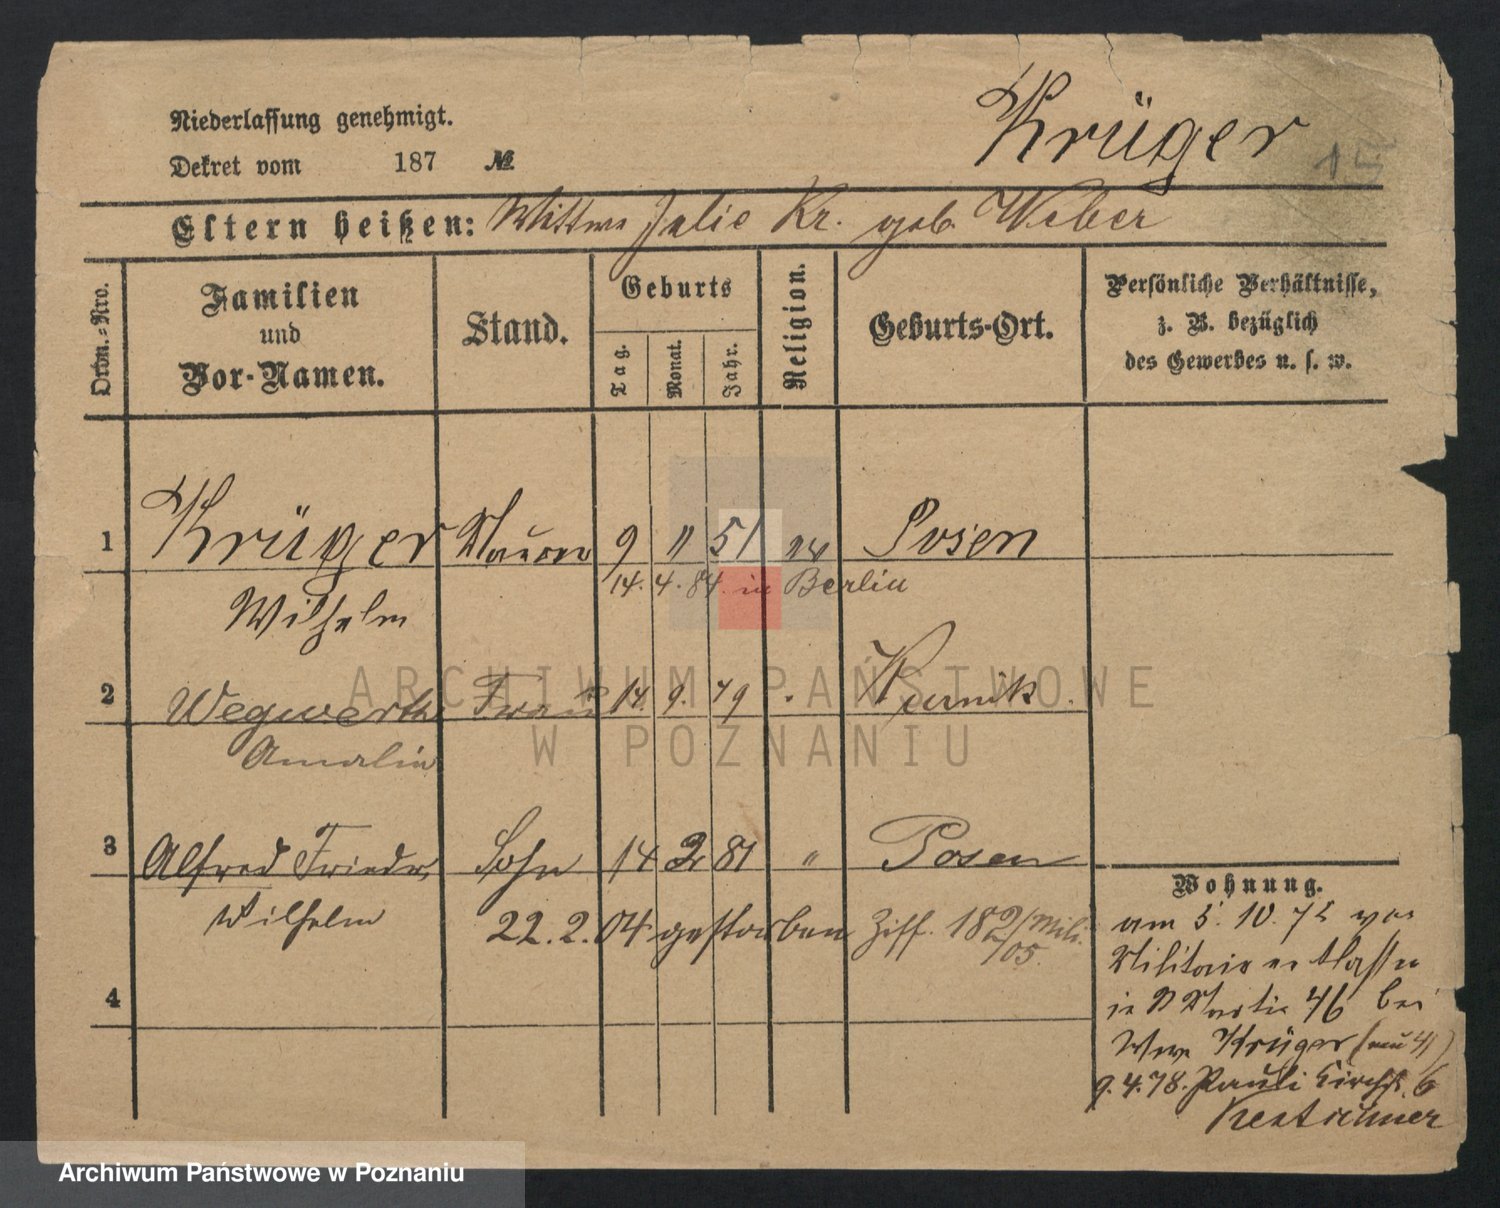 Niederlassung genehmigt.
Dekret vom 187 №
Krüger
15
Eltern heißen: Wittwe Julie Kr. geb. Weber
Ordn.-Nro.
Familien
und
Vor-Namen.
Stand.
Geburts
Tag.
Monat.
Jahr.
Religion.
Geburts-Ort.
Persönliche Verhältnisse,
z. B. bezüglich
des Gewerbes u. s. w.
1 Krüger Maurer 9 11 51 ev Posen
14. 4. 84. in Berlin
Wilhelm
2 Wegwerth Frau 14. 9. 79 Kurnik.
Amalie
3 Alfred Friedr. Sohn 14 2 81 " Posen
Wilhelm
22. 2. 04 gestorben Ziff. 182/Mili.
/05.
4
Wohnung.
am 5. 10. 72 vom
Militair entlassen
St Martin 46 bei
Wwe Krüger (neu 41)
9. 4. 78. Pauli Kirchst. 6
ARCHIWUM PAŃSTWOWE
W POZNANIU
Archiwum Państwowe w Poznaniu